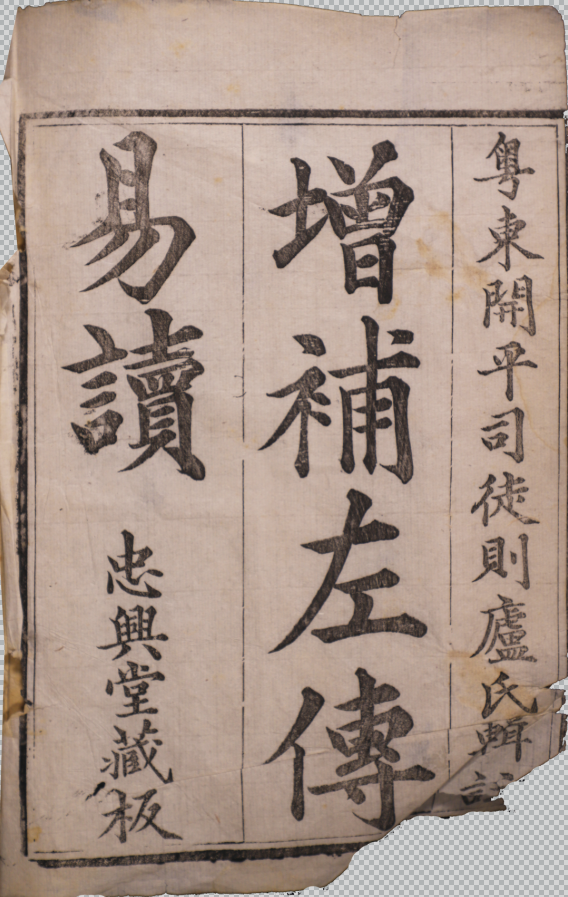 粤東開平司徒則廬氏輯
增補左傳
易讀
忠興堂藏板